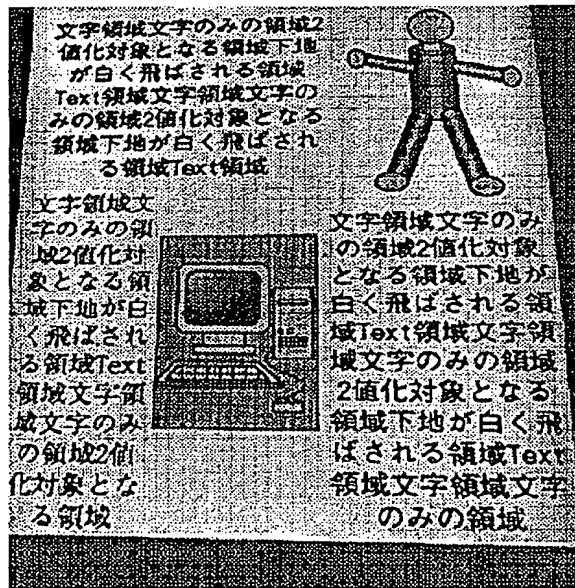 文字領域文字のみの領域2
値化対象となる領域下地
が白く飛ばされる領域
Text領域文字領域文字の
みの領域2値化対象となる
領域下地が白く飛ばされ
る領域Text領域
文字領域文
字のみの領
域2値化対
象となる領
域下地が白
く飛ばされ
る領域Text
領域文字領
域文字のみ
の領域2値
化対象とな
る領域
文字領域文字のみ
の領域2値化対象
となる領域下地が
白く飛ばされる領
域Text領域文字領
域文字のみの領域
2値化対象となる
領域下地が白く飛
ばされる領域Text
領域文字領域文字
のみの領域